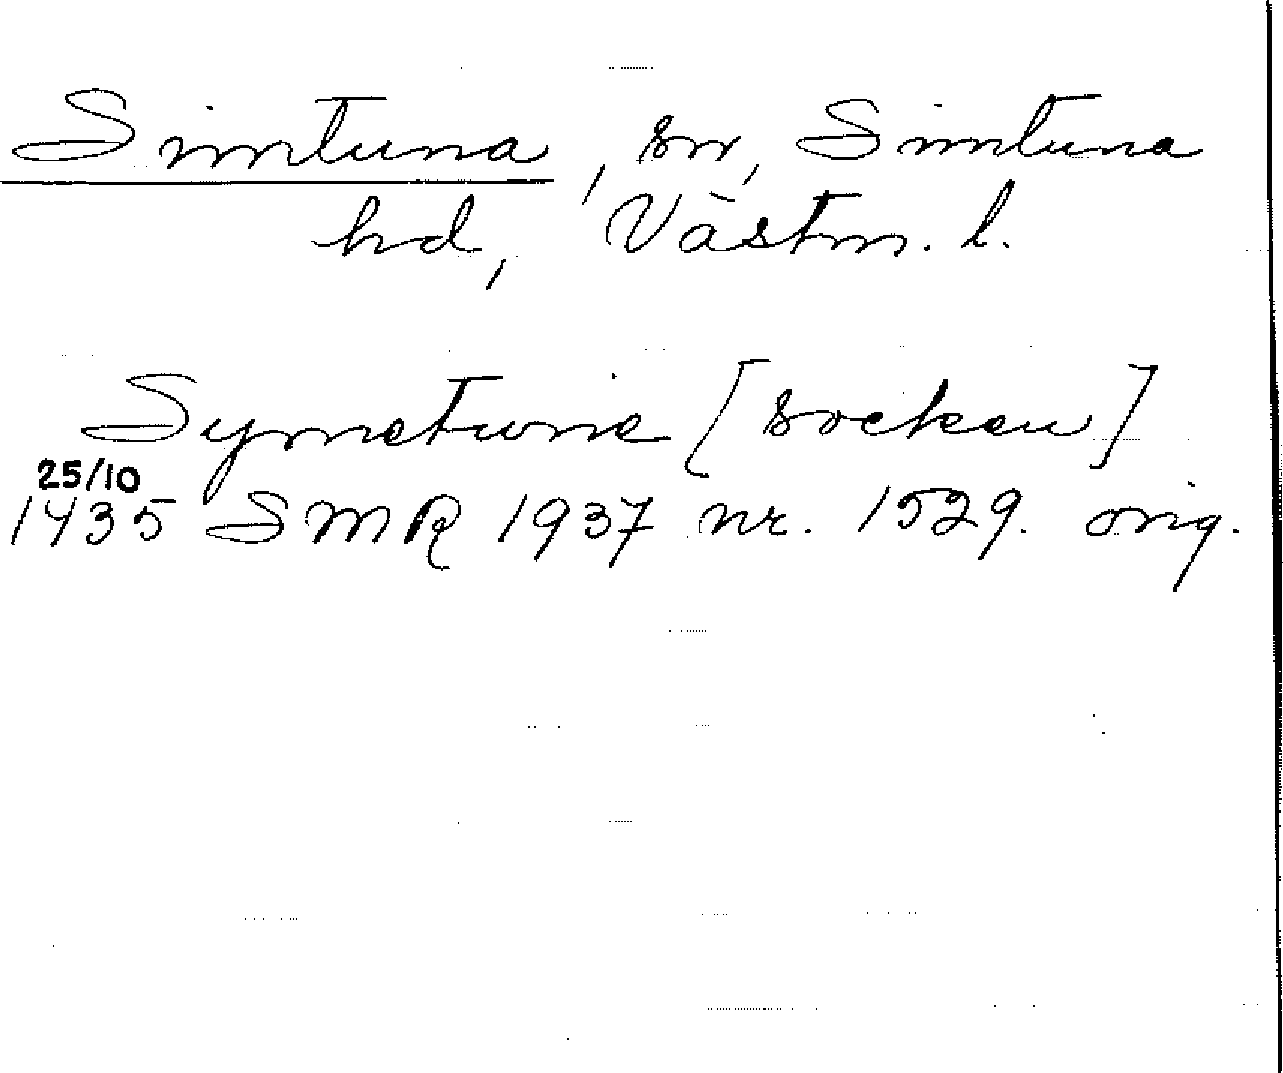 Simtuna, sn, Simtuna
hd, Västm. l.
Symetwne [socken]
25/10
1435 SMR 1937 nr. 1529. orig.